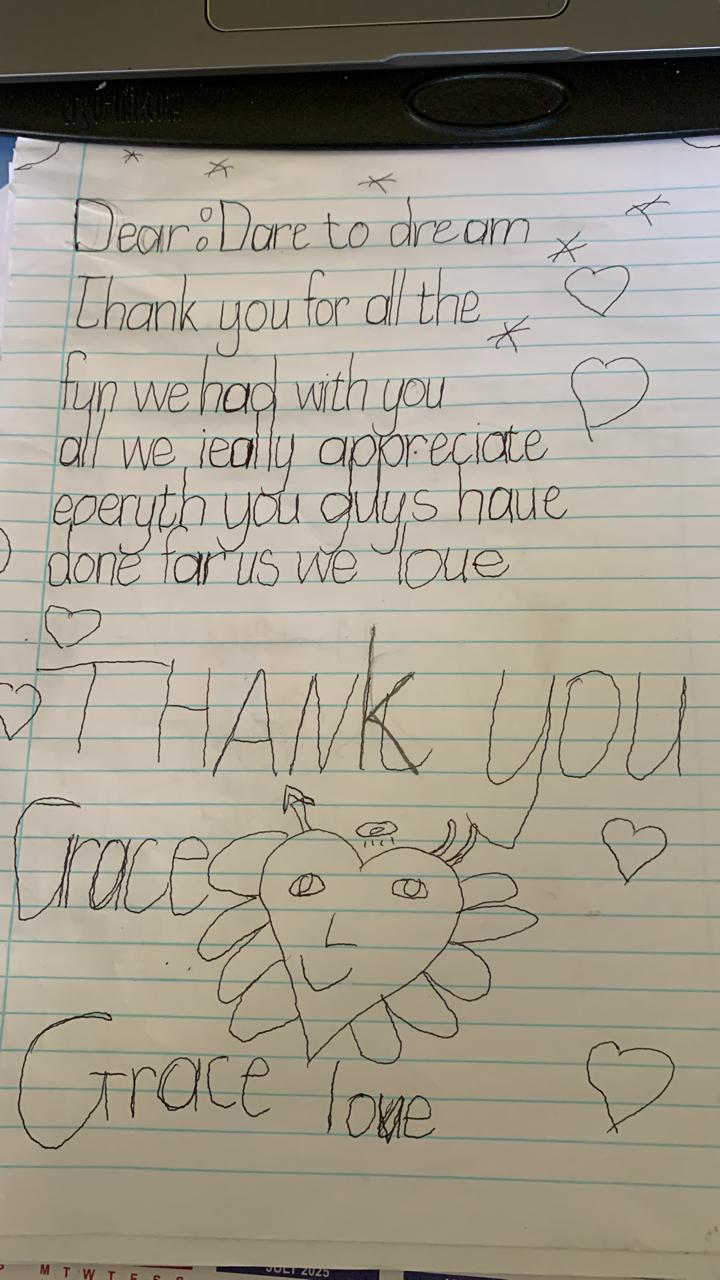 Dear: Dare to dream
Thank you for all the
fun we had with you
all we really appreciate
eperyth you guys haue
done far us we loue
THANK YOU
Grace
Grace loue
M T W T F S S
JULY 2025